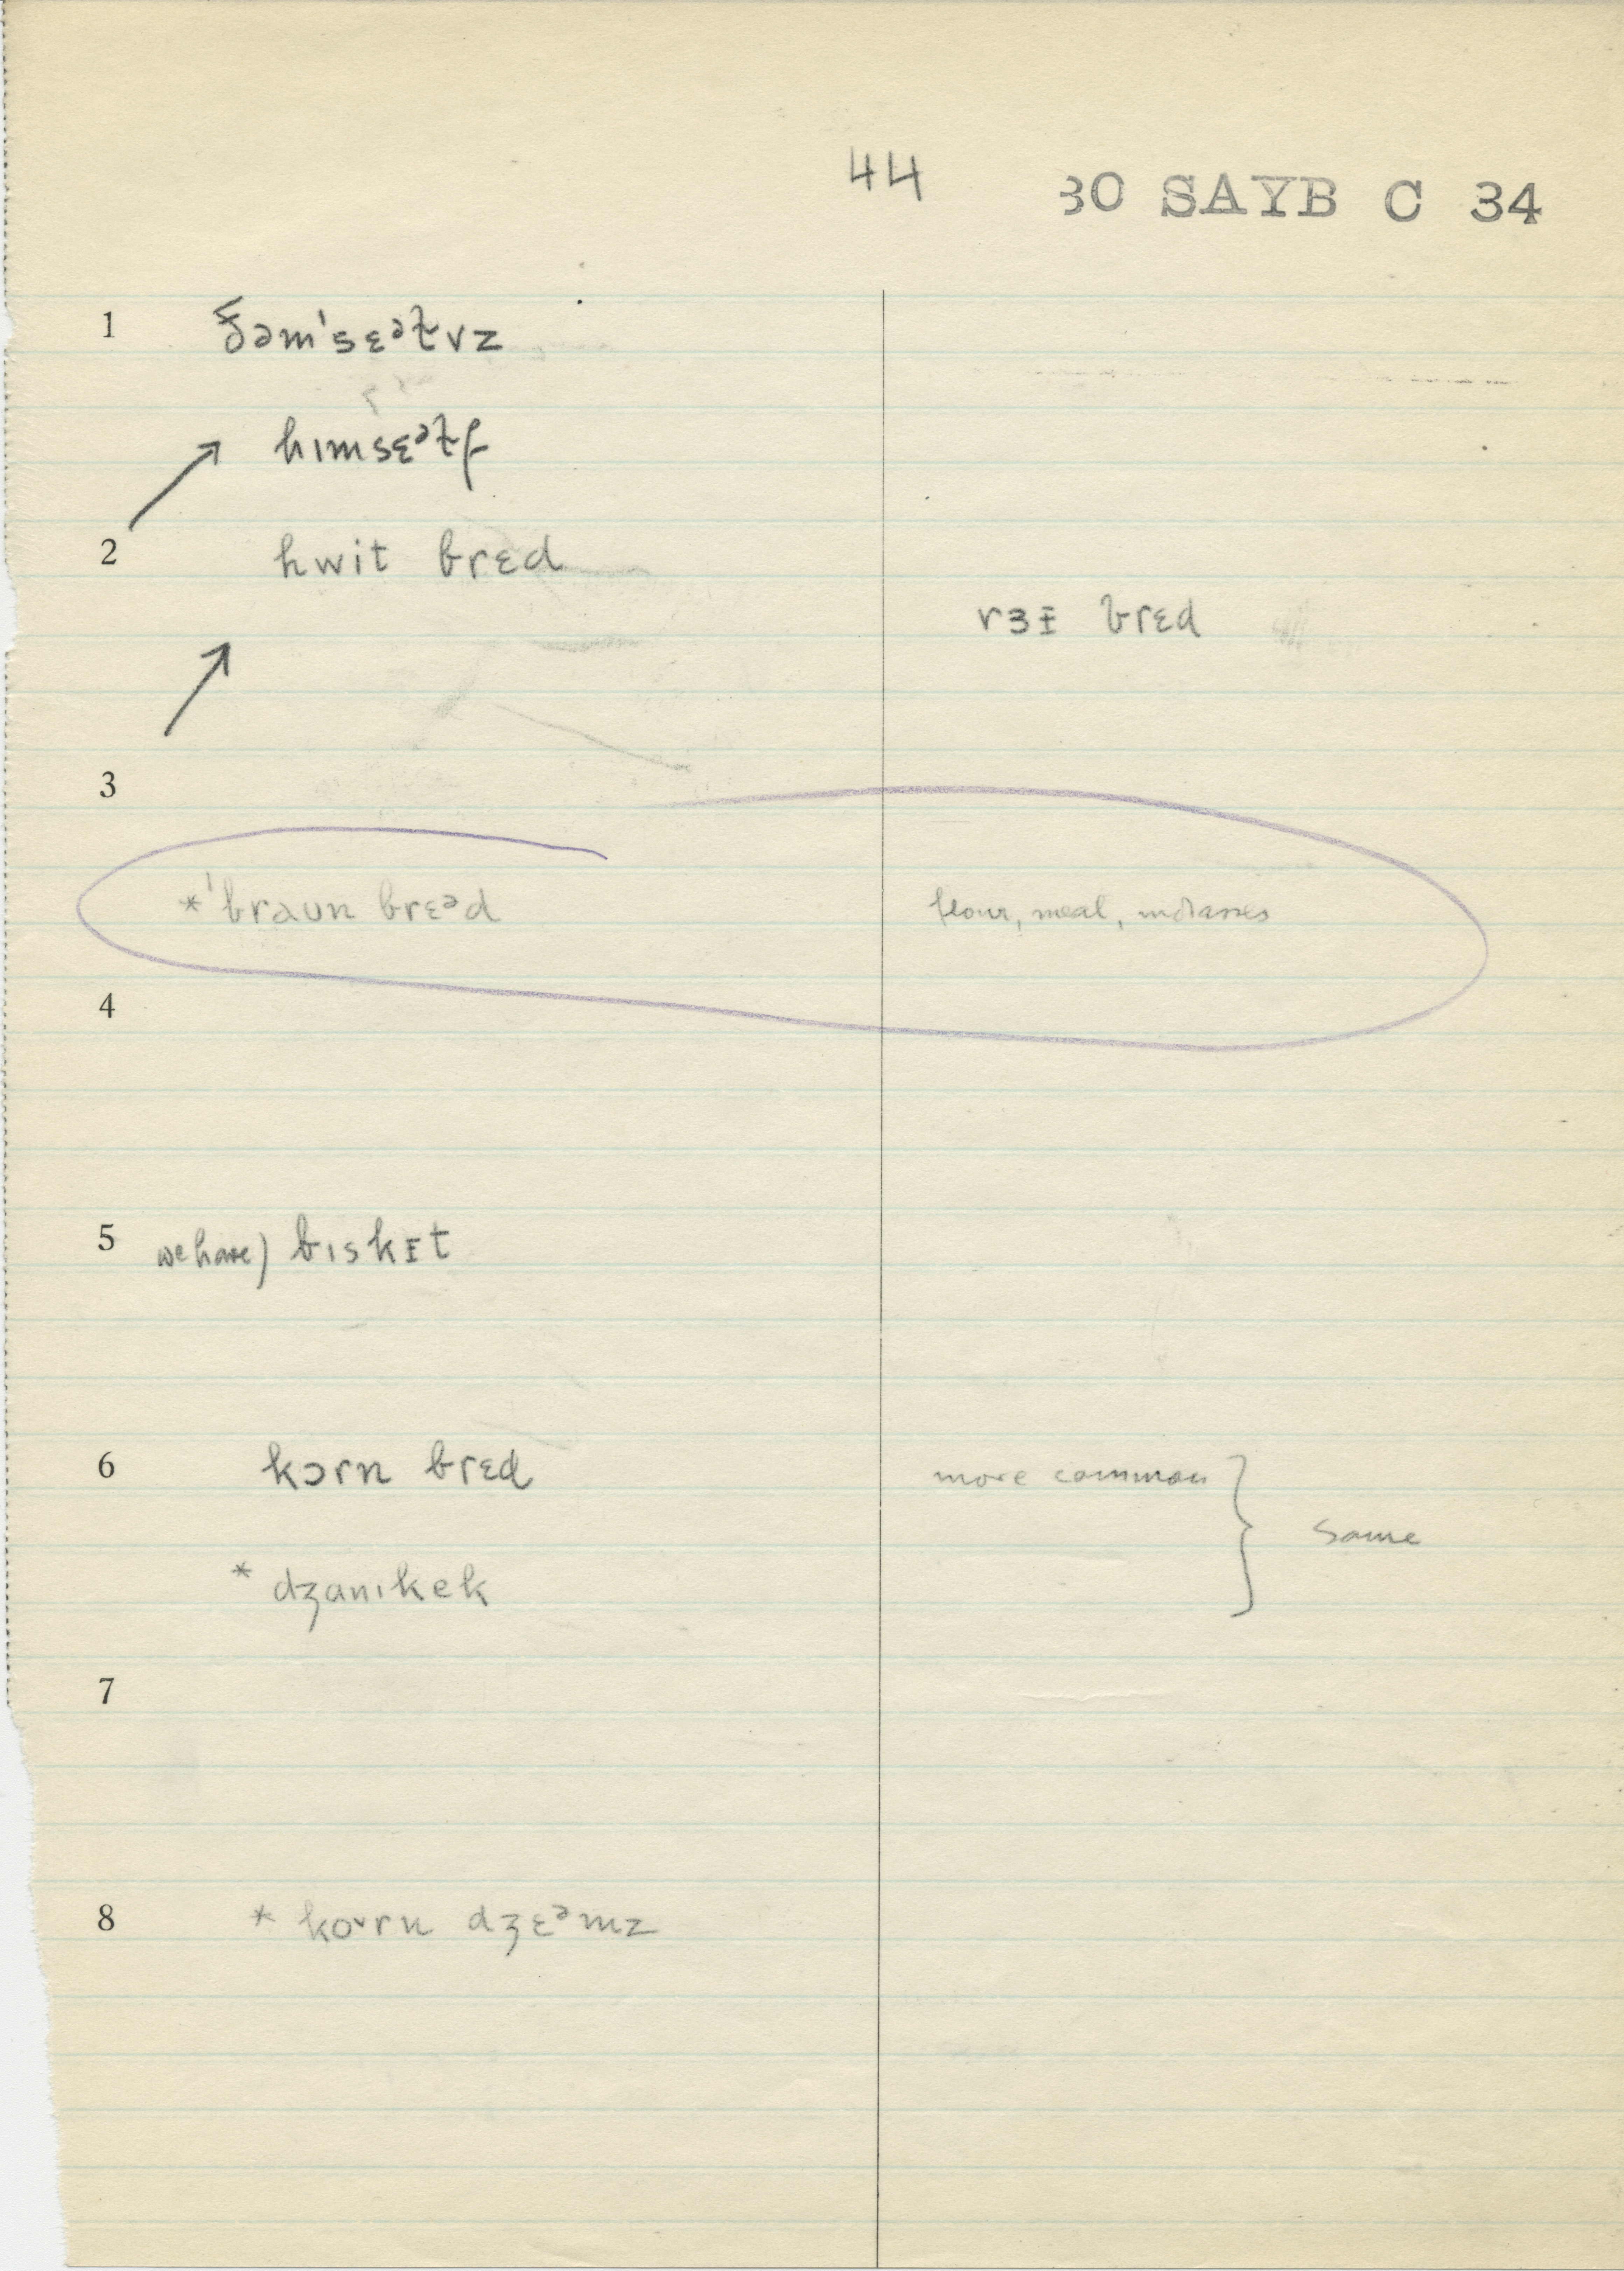 44 30 SAYB C 34
1 ðəmˈsɛᵊɫvz
hɪmsɛᵊɫf
2 hwit brɛd
rɜᵻ brɛd
3
*ˈbraʊn brɛᵊd flour, meal, molasses
4
5 we have) bɪskᵻt
6 kɔrn brɛd more common } same
* dʒanɪkek
7
8 * koᵛrn dʒɛᵊmz